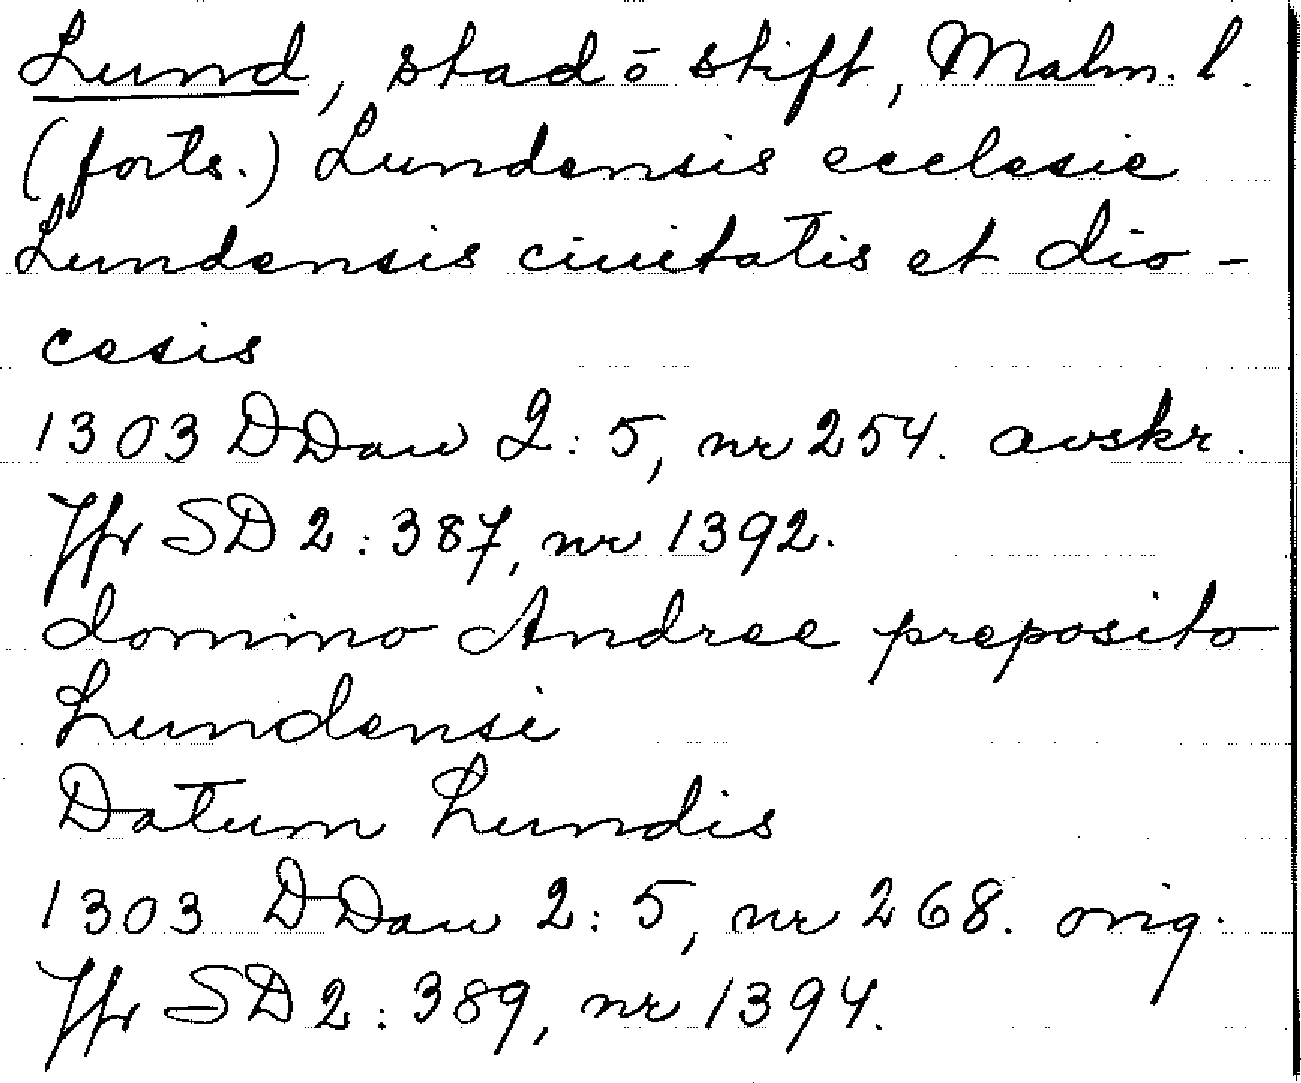 Lund, stad o stift, Malm. l.
(forts.) Lundensis ecclesie
Lundensis ciuitatis et dio-
cesis
1303 DDan 2:5, nr 254. avskr.
Jfr SD 2:387, nr 1392.
domino Andree preposito
Lundensi
Datum Lundis
1303 DDan 2:5, nr 268. orig.
Jfr SD 2:389, nr 1394.